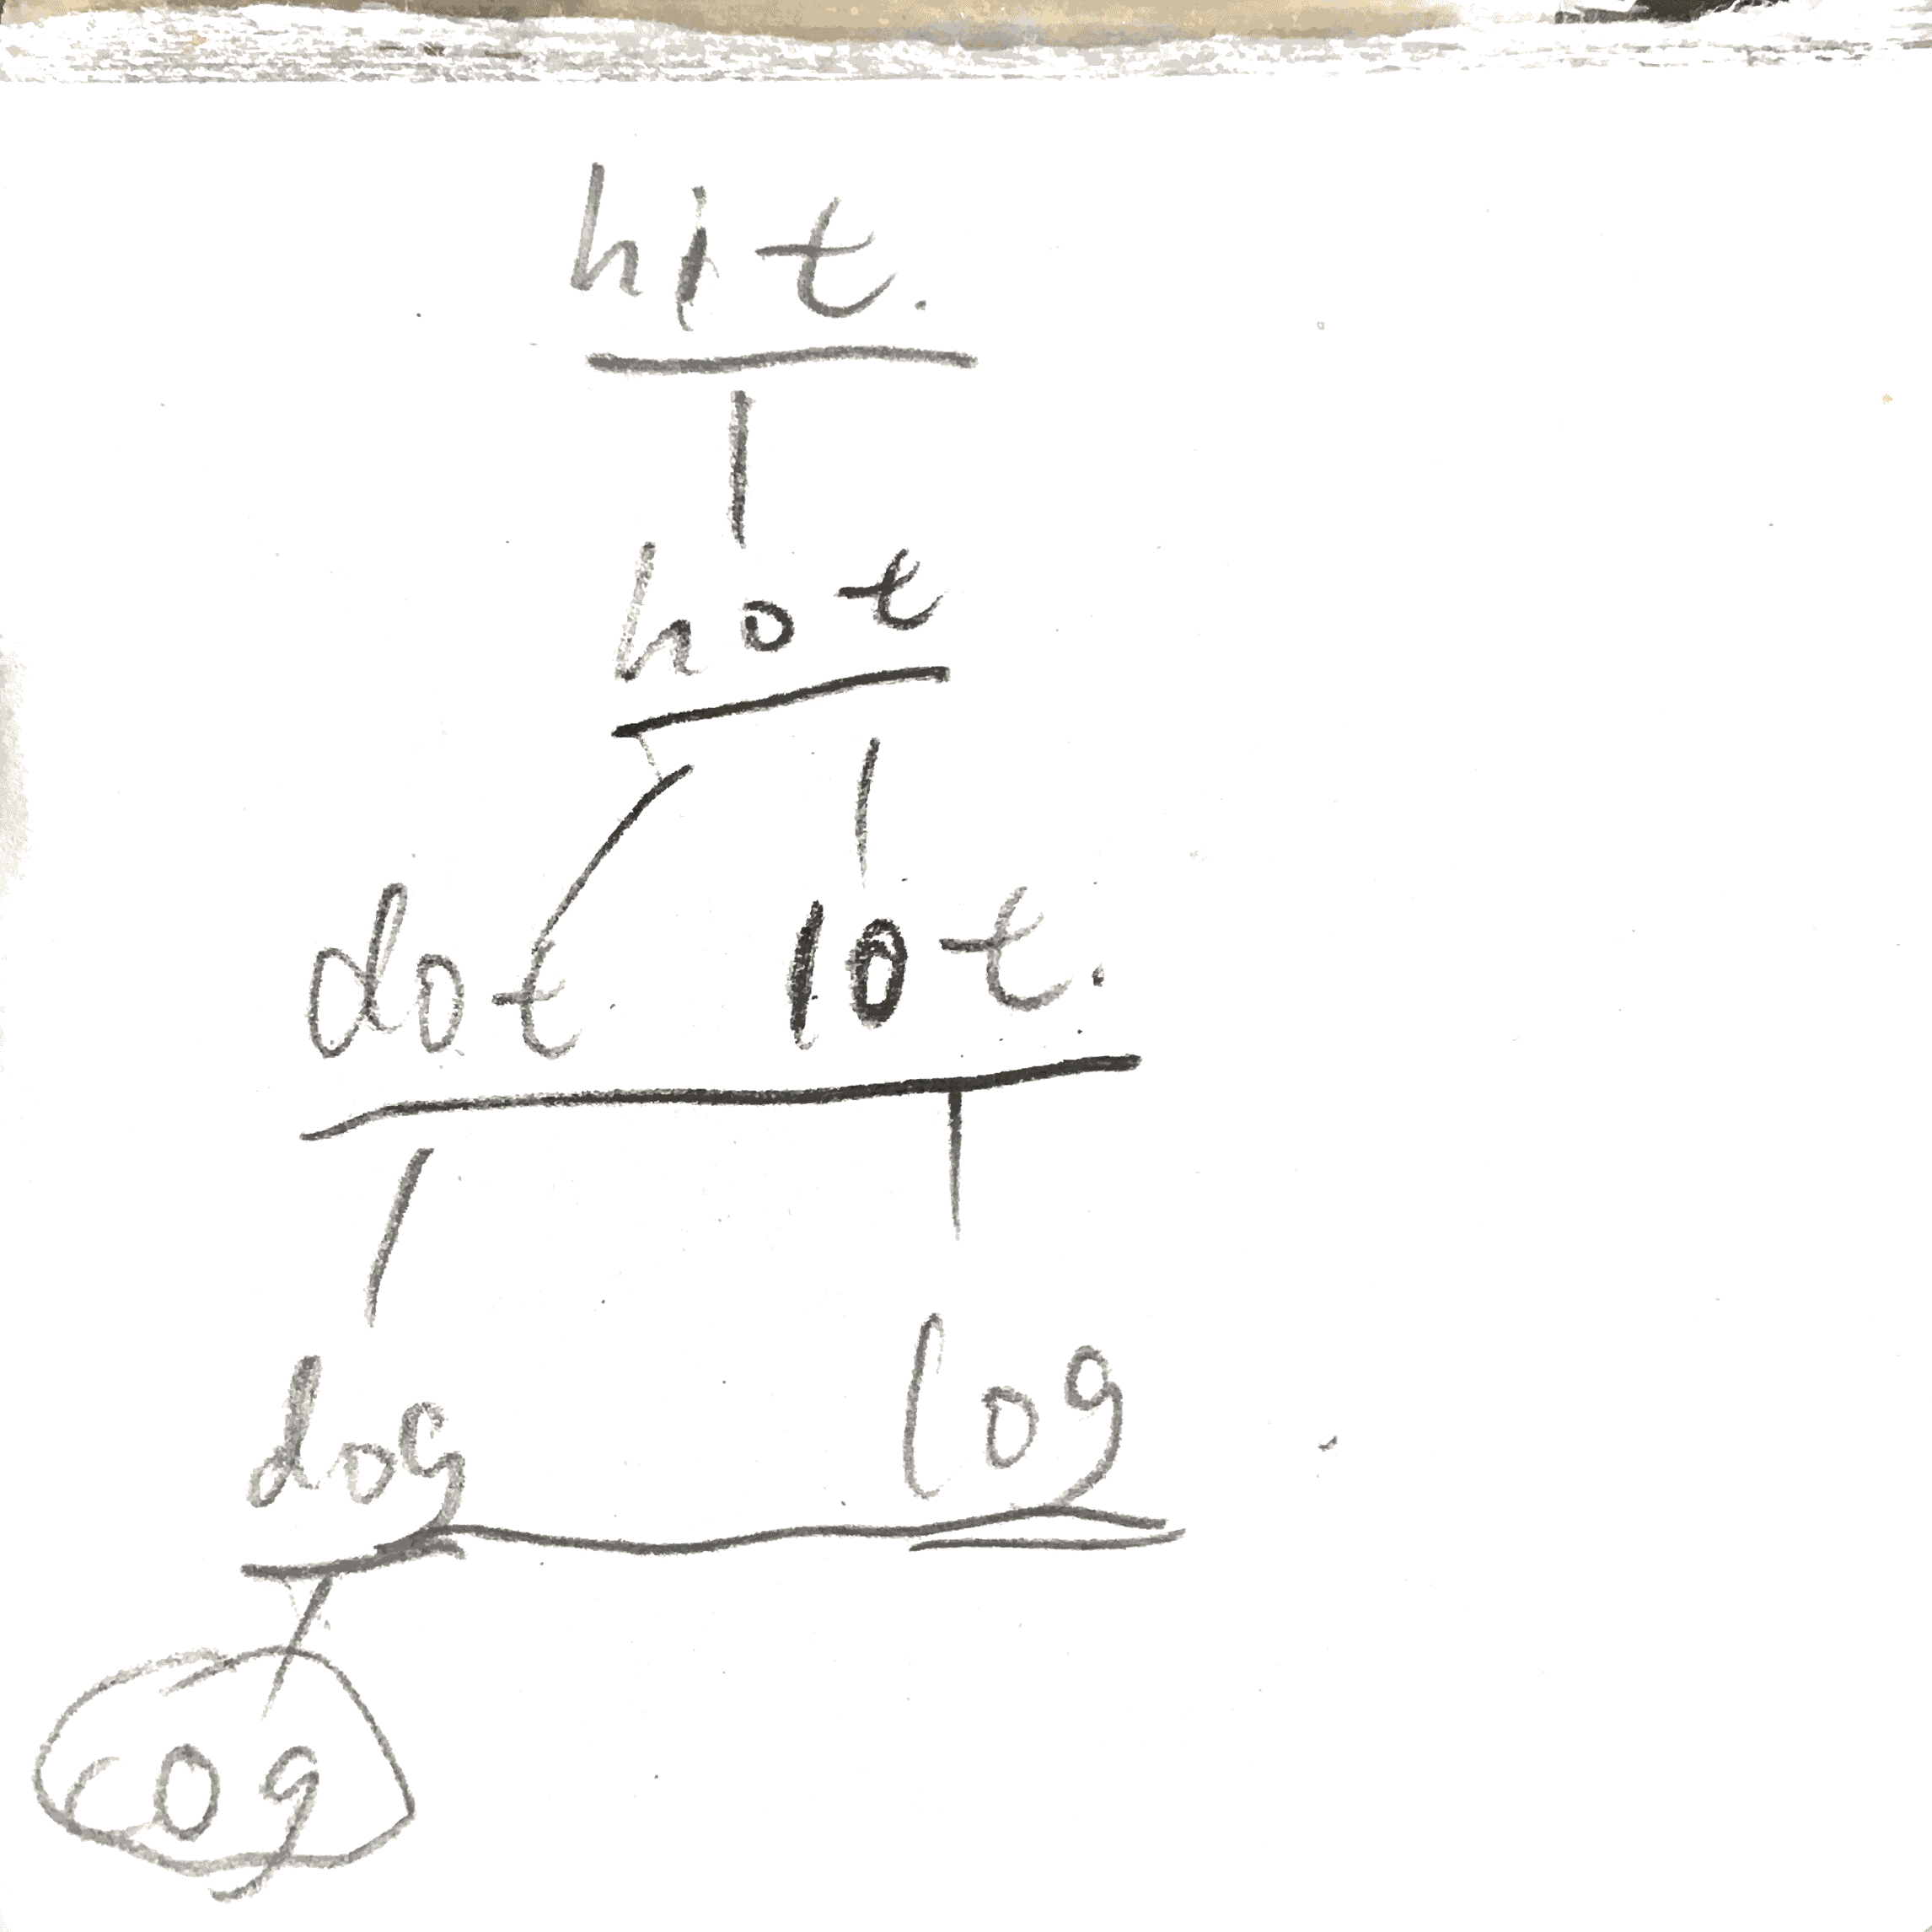 hit.
hot
dot lot.
dog log
cog